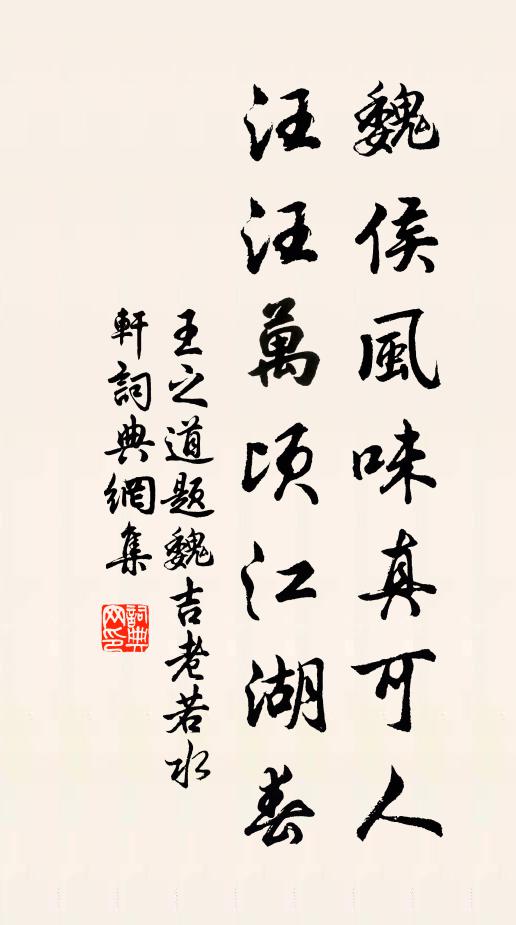 魏侯風味真可人
汪汪萬頃江湖春
王之道題魏吉老若水
軒詞典網集
詞典網印